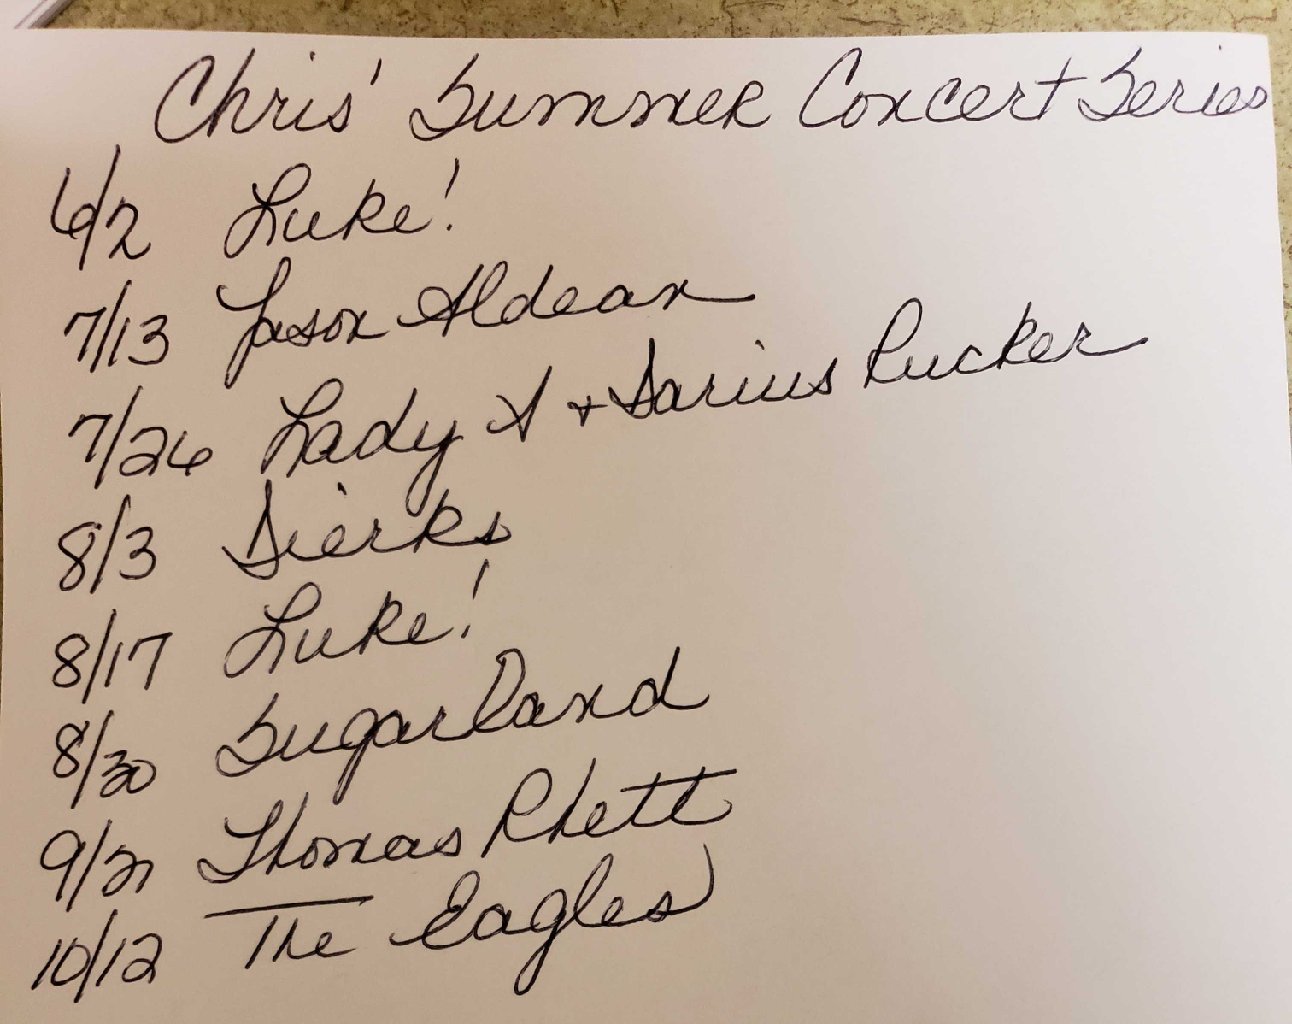 Chris' Summer Concert Series
6/2 Luke!
7/13 Jason Aldean
7/26 Lady A + Darius Rucker
8/3 Dierks
8/17 Luke!
8/30 Sugarland
9/21 Thomas Rhett
10/12 The Eagles